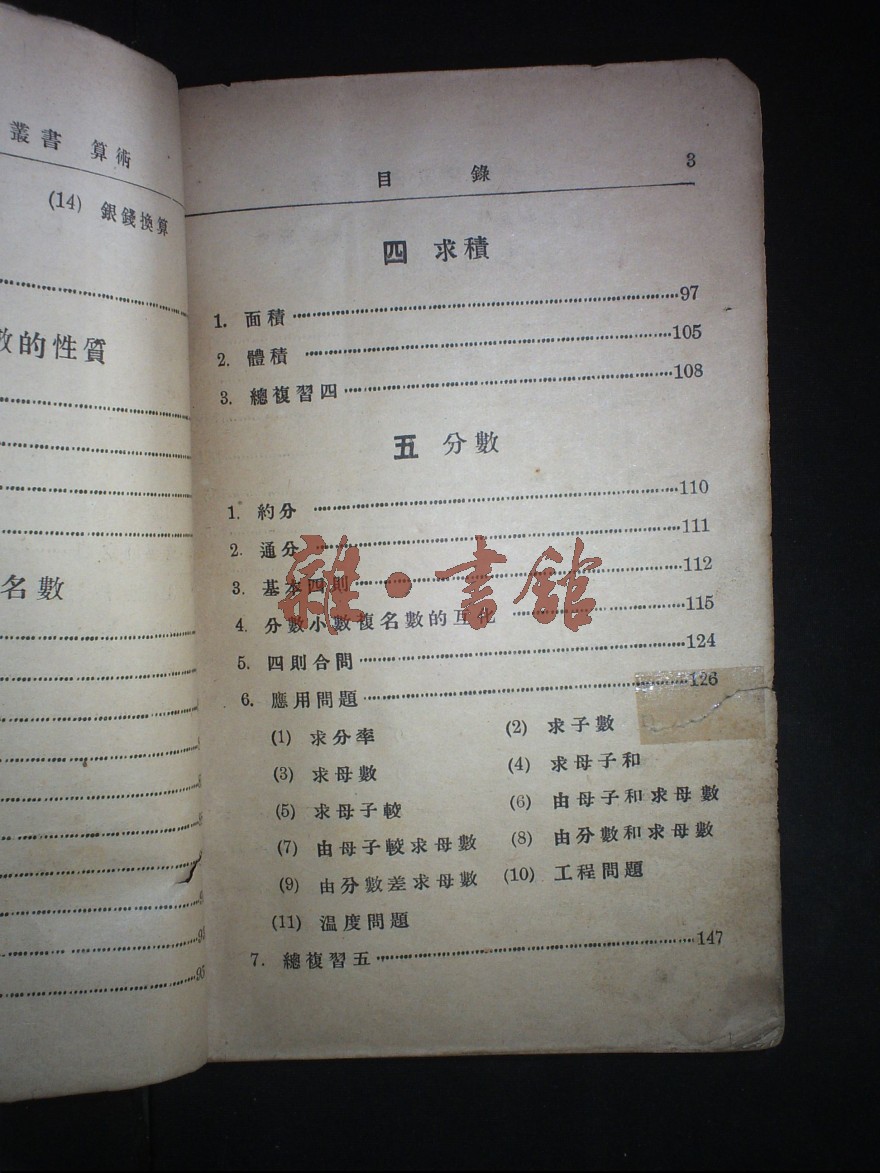 叢書 算術
(14) 銀錢換算
數的性質
名數
93
95
目錄 3
四 求積
1. 面積 97
2. 體積 105
3. 總複習四 108
五 分數
1. 約分 110
2. 通分 111
3. 基本四則 112
4. 分數小數複名數的互化 115
5. 四則合問 124
6. 應用問題 126
(1) 求分率 (2) 求子數
(3) 求母數 (4) 求母子和
(5) 求母子較 (6) 由母子和求母數
(7) 由母子較求母數 (8) 由分數和求母數
(9) 由分數差求母數 (10) 工程問題
(11) 温度問題
7. 總複習五 147
雜·書館